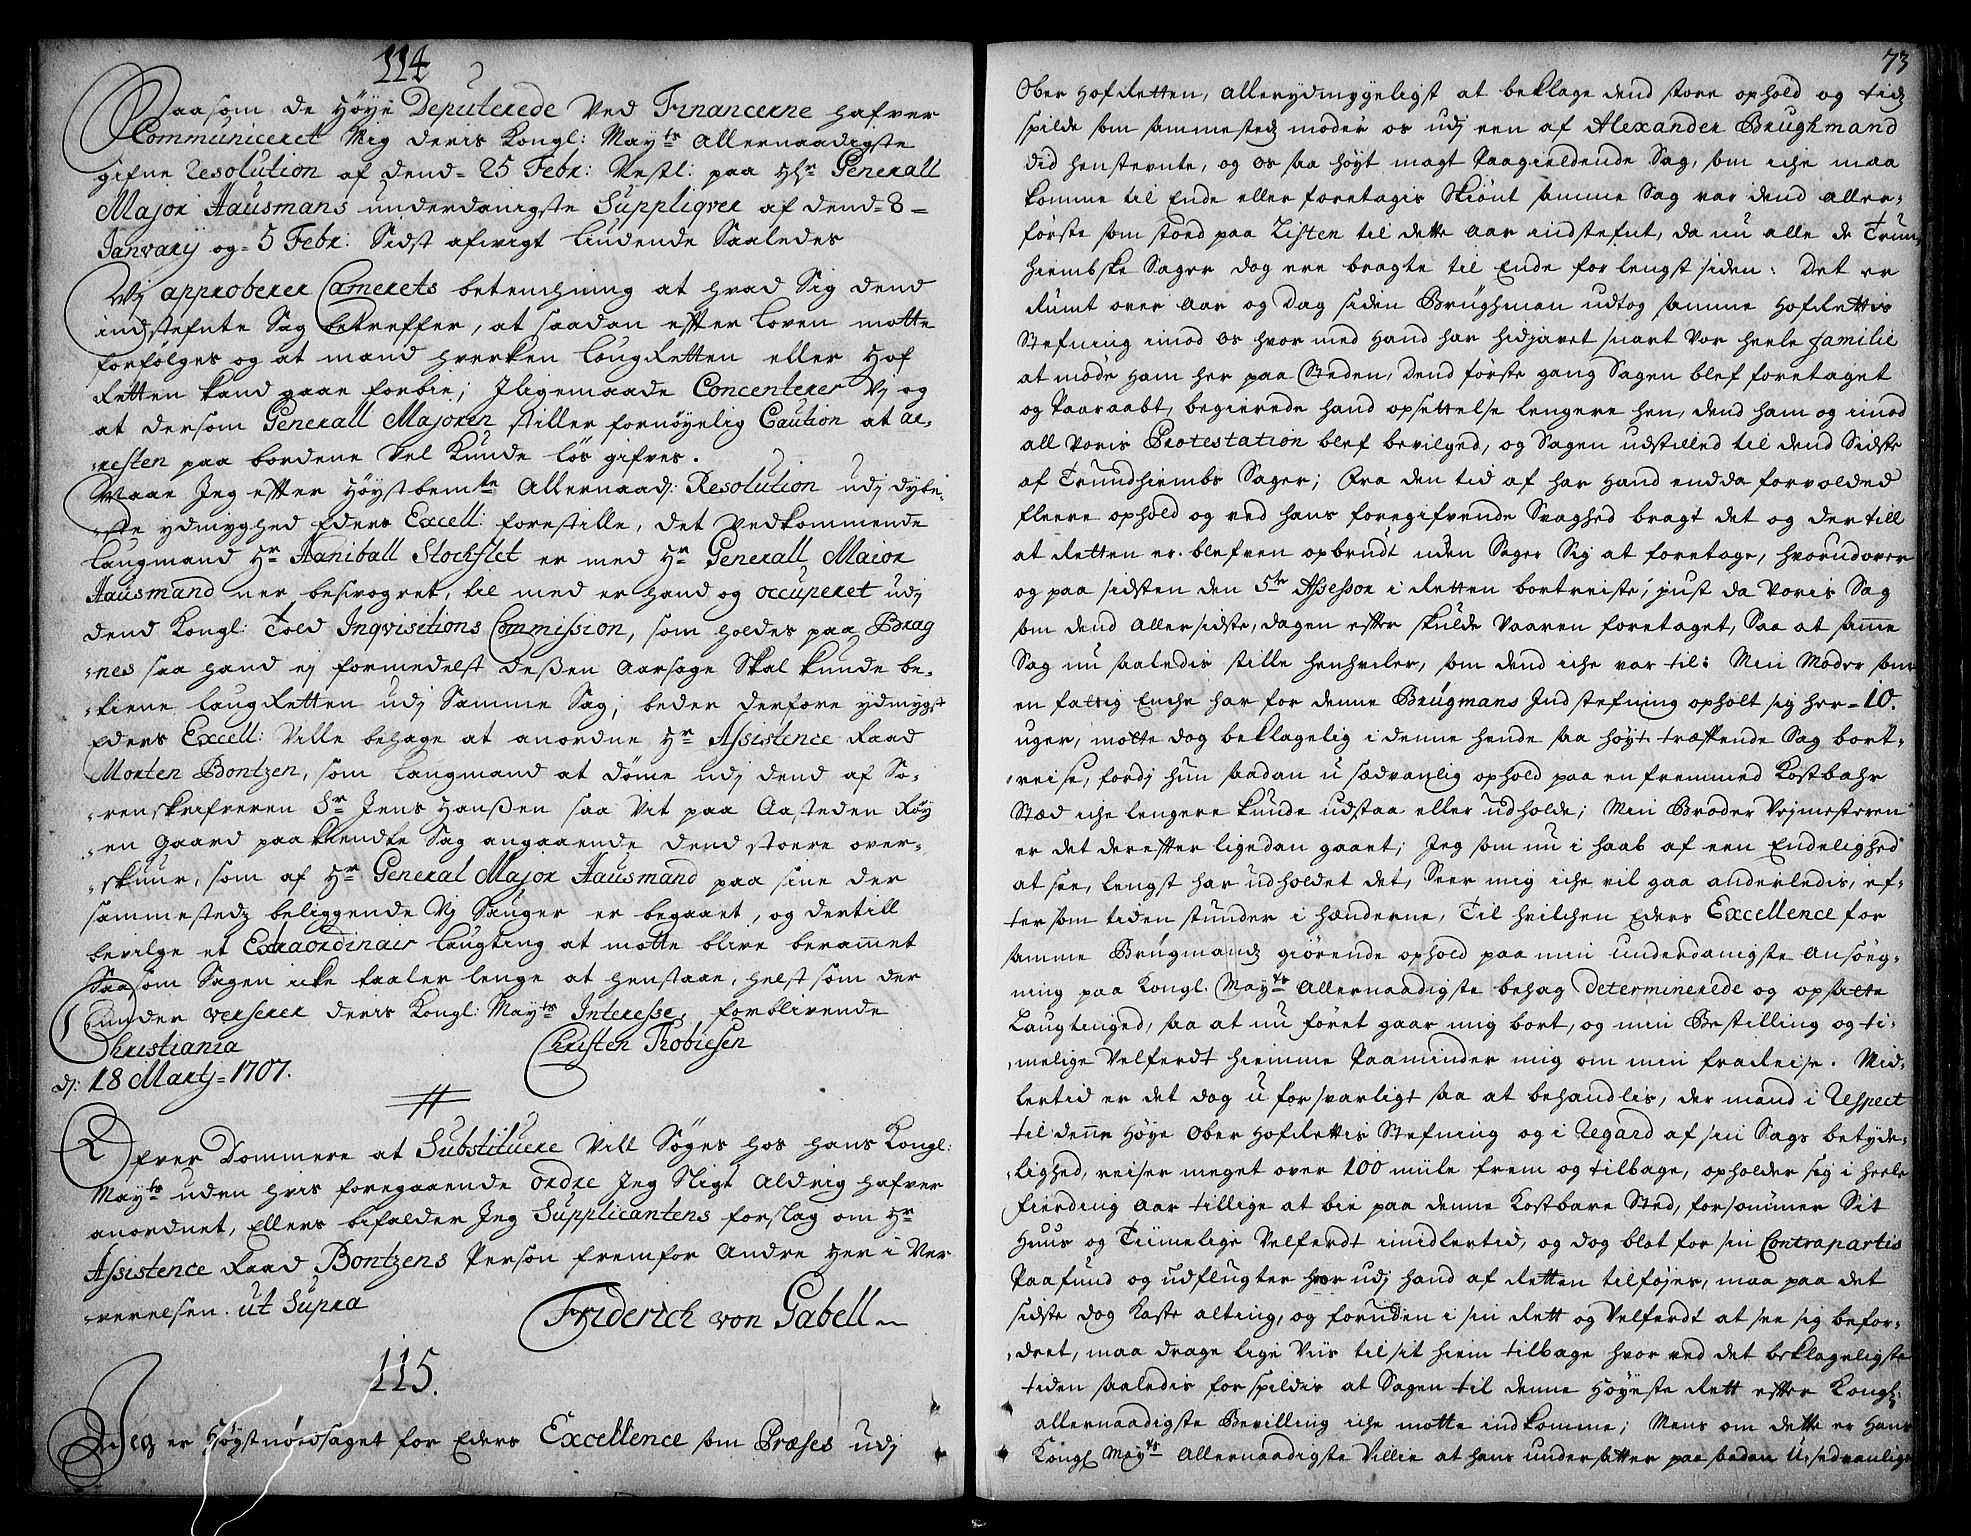 114
Saasom de Høye Deputerede ved Financerne hafver
Communiceret Mig deris Kongl: Mayts Allernaadigste
gifne Resolution af dend= 25 Febr: Nestl: paa Hr Generall
Major Hausmans underdanigste Suppliqver af dend= 8 =
Janvarij og= 5 Febr: Sidst afvigt liudende Saaledes
Vj approberer Camerets betenchning at hvad Sig dend
indstefnte Sag betreffer, at saadan efter loven motte
forfølges og at mand hverken laugRetten eller Hof
Retten kand gaae forbie; Jligemaade Concenterer Vj og
at dersom Generall Majoren stiller fornøyelig Caution at ar,
,resten paa bordene vel Kunde løs gifves.
Maae Jeg efter Høystbemte Allernaad: Resolution udj dybe,
,ste ydmyghed Eders Excell: forestille, det vedkommende
Laugmand Hr Haniball Stochflet er med Hr Generall Maior
Hausmand ner besvogret, til med er hand og occuperet udj
dend Kongl: Told Inqvisitions Commission, som holdes paa Brag
,nes saa hand ej formedelst deßen Aarsage Skal kunde be,
,tiene laugRetten udj Samme Sag; beder derfore ydmygst
Eders Excell: Ville behage at anordne Hr Assistence Raad
Morten Bontzen, som laugmand at døme udj dend af So,
,renskrifveren Sr Jens Hanßen saa vit paa Aasteden Røy
,en gaard paakiendte Sag angaaende dend stoere over,
,skuur, som af Hr General Major Hausmand paa sine der
sammestedz beliggende Vj Sauger er begaaet, og dertill
bevilge et Extraordinair laugting at motte blive berammet
Saasom Sagen icke taaler lenge at henstaae, helst som der
under verserer deris Kongl: Mayts Interesse, forblivende
Christiania Christen Thobiesen
d: 18 Martj= 1707.
Ofver Dommere at Substituere vill Søges hos hans Kongl:
Mayts uden hvis foregaaende ordre Jeg Sligt Aldrig hafver
anordnet, Ellers bifalder Jeg Supplicantens forslag om Hr
Assistence Raad Bontzens Person fremfor Andre Her i Ver
,rerelsen. ut Supra
Friderich von Gabell
115.
Jeg er Høystnødsaget for Eders Excellence som Præses udj
73
Ober HofRetten, allerydmygeligst at beklage dend store ophold og tidz
spilde som sammestedz møder os udj een af Alexander Brughmand
did henstevnte, og os saa høyt magt Paagieldende Sag, som iche maa
komme til Ende eller foretagis Skiønt samme Sag var dend aller,
første som stoed paa Listen til dette Aar indstefnt, da nu alle de Trun,
hiembske Sager dog ere bragte til Ende for lengst siden: Det er
Rumt over Aar og Dag siden Brughman udtog samme HofRettis
Stefning imod os hvor med Hand har hidjavet snart vor heele familie
at møde Ham her paa Steden, Dend første gang Sagen blef foretaget
og Paaraabt, begierede hand opsettelse lengere hen, dend ham og imod
all voris Protestation blef bevilged, og Sagen udstilled til dend Sidste
af Trundhiembs Sager; Fra den tid af har Hand endda forvolded
fleere ophold og ved hans foregifvende Svaghed bragt det og der till
at Retten er blefven opbrudt uden Sager Sig at foretage, hvorudover
og paa sidsten den 5te Assessor i Retten bortreiste, just da voris Sag
som dend Allersidste, dagen efter skulde vaaren foretaget, Saa at samme
Sag nu saaledis stille henhviler, som dend iche var til: Min Moder som
en fattig Enche har for denne Brugmans Indstefning opholt sig her= 10.
uger, motte dog beklagelig i denne hende saa høyt træffende Sag bort,
,reise, fordj hun saadan u sædvanlig ophold paa en fremmed Kostbahr
Stæd iche lengere kunde udstaa eller udholde; Min Broder Vejmesteren
er det derefter ligedan gaaet; Jeg som nu i haab af een Endelighed
at see, lengst har udholdet det, Seer mig iche vil gaa anderledis, ef,
ter som tiden stunder i hænderne, Til hvilchen Eders Excellence for
samme Brugmandz giørende ophold paa min underdanigste ansøeg,
ning paa Kongl: Mayts Allernaadigste behag determinerede og opsatte
Laugtinged, saa at nu føret gaar mig bort, og min Bestilling og ti,
,melige Velferdt hiemme Paaminder mig om min fraReise. Mid,
lertid er det dog u forsvarligt saa at behandlis, der mand i Respect
til denne Høye Ober HofRettis Stefning og i Regard af sin Sags betyde,
,lighed, reiser meget over 100 miile frem og tilbage, opholder sig i heele
fierding Aar tillige at bie paa denne Kostbare Sted, forsømmer Sit
Huus og Tiimelige Velferdt imidlertid, og dog blot for sin Contrapartis
Paafund og udflugter hvor udj hand af Retten tilføjes, maa paa det
sidste dog Kaste alting, og foruden i sin Rett og Velferdt at see sig befor,
,dret, maa drage lige Viis til sit hiem tilbage hvor ved det beklageligste
tiden saaledis forspildis at Sagen til denne Høyeste Rett efter Kongl:
allernaadigste Bevilling iche motte indkomme; Mens om dette er Hans
Kongl Mayts Allernaadigste Villie at hans undersatter paa saadan U,sedvanlige